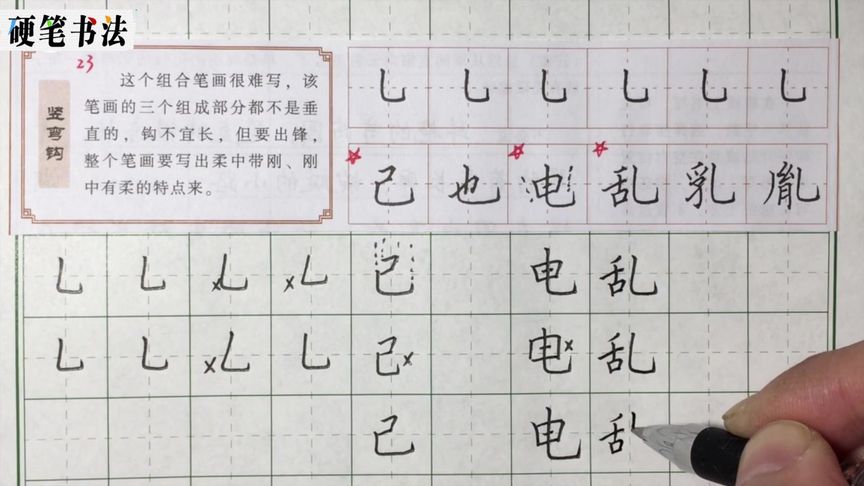 硬笔书法
23
竖弯钩
这个组合笔画很难写，该
笔画的三个组成部分都不是垂
直的，钩不宜长，但要出锋，
整个笔画要写出柔中带刚、刚
中有柔的特点来。
乚 乚 乚 乚 乚 乚
己 也 电 乱 乳 胤
乚 乚 乚 乚 己 电 乱
乚 乚 乚 乚 己 电 乱
己 电